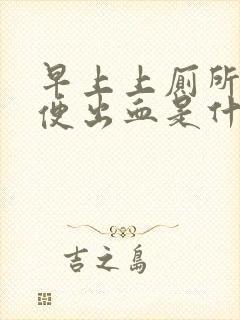 早上上厕所
便出血是什
吉之岛